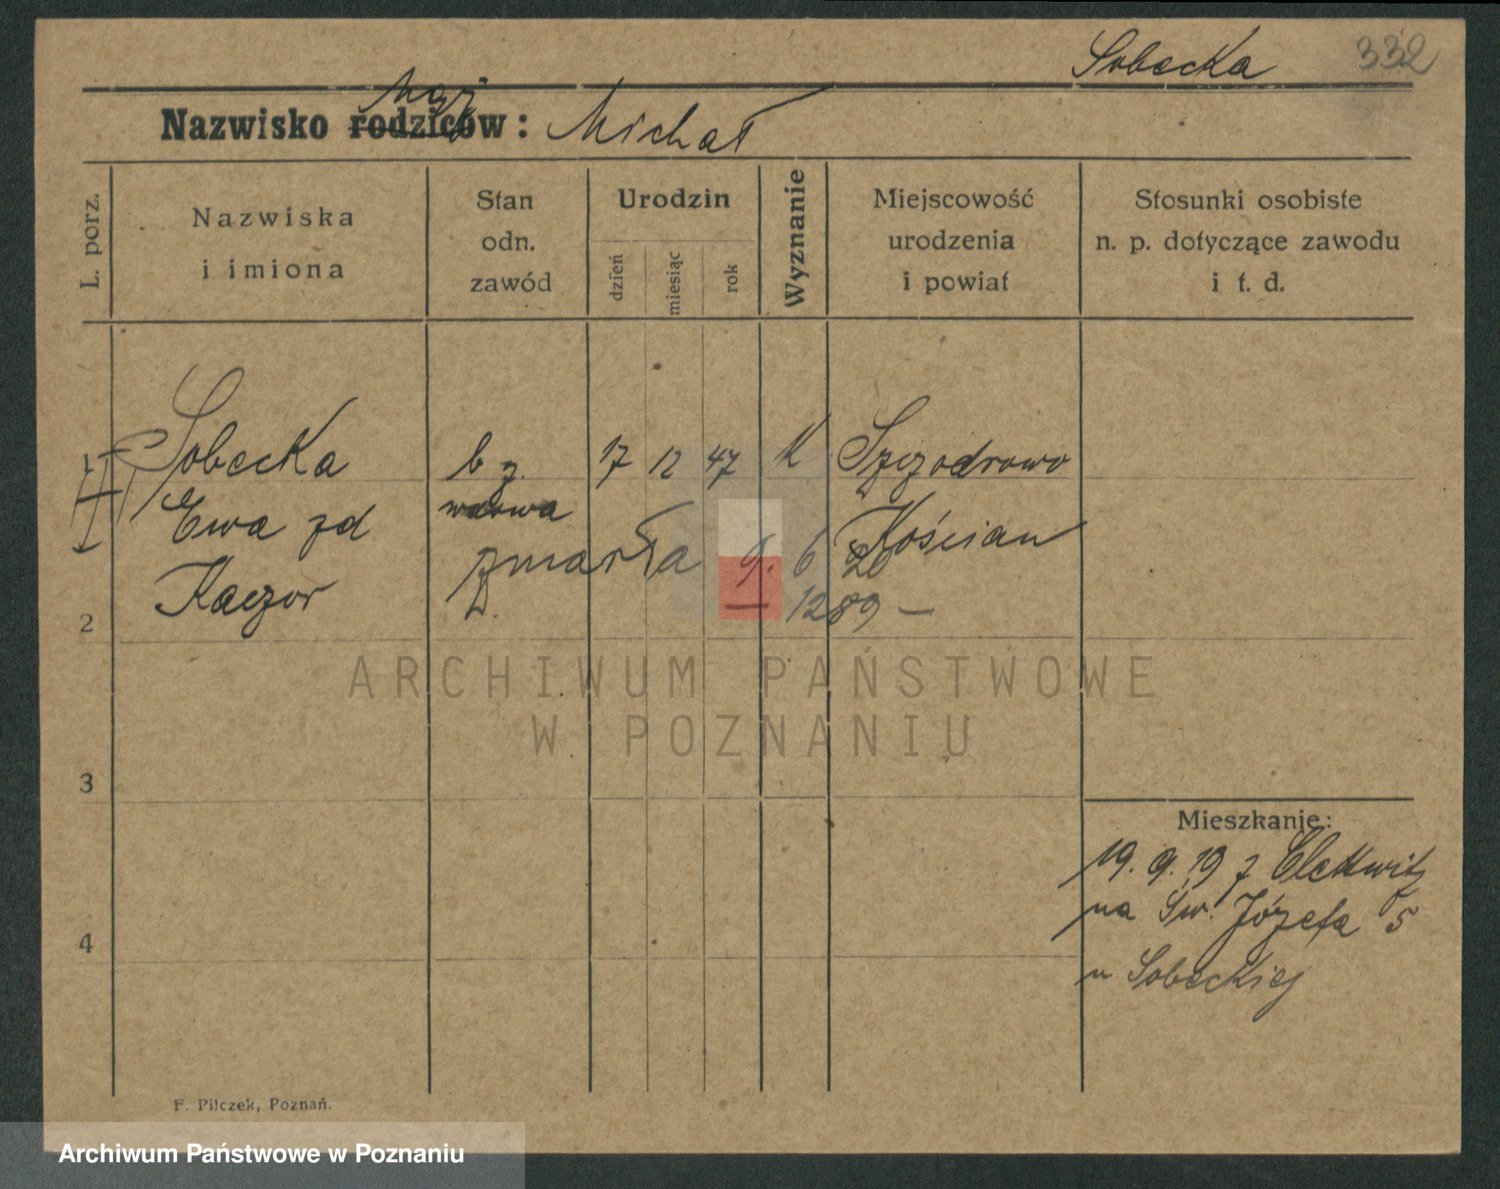 Sobecka 332
Nazwisko rodziców: Michał
mąż
L. porz.
Nazwiska
i imiona
Stan
odn.
zawód
Urodzin
dzień
miesiąc
rok
Wyznanie
Miejscowość
urodzenia
i powiat
Stosunki osobiste
n. p. dotyczące zawodu
i t. d.
1 Sobecka b z. 17 12 47 K Szczodrowo
Ewa zd wdowa Kościan
zmarła 9. 6 20
Kaczor
1289 —
2
3
4
Mieszkanie:
19. 9. 19 z
na Św. Józefa 5
u Sobeckiej
F. Pilczek, Poznań.
ARCHIWUM PAŃSTWOWE
W POZNANIU
Archiwum Państwowe w Poznaniu